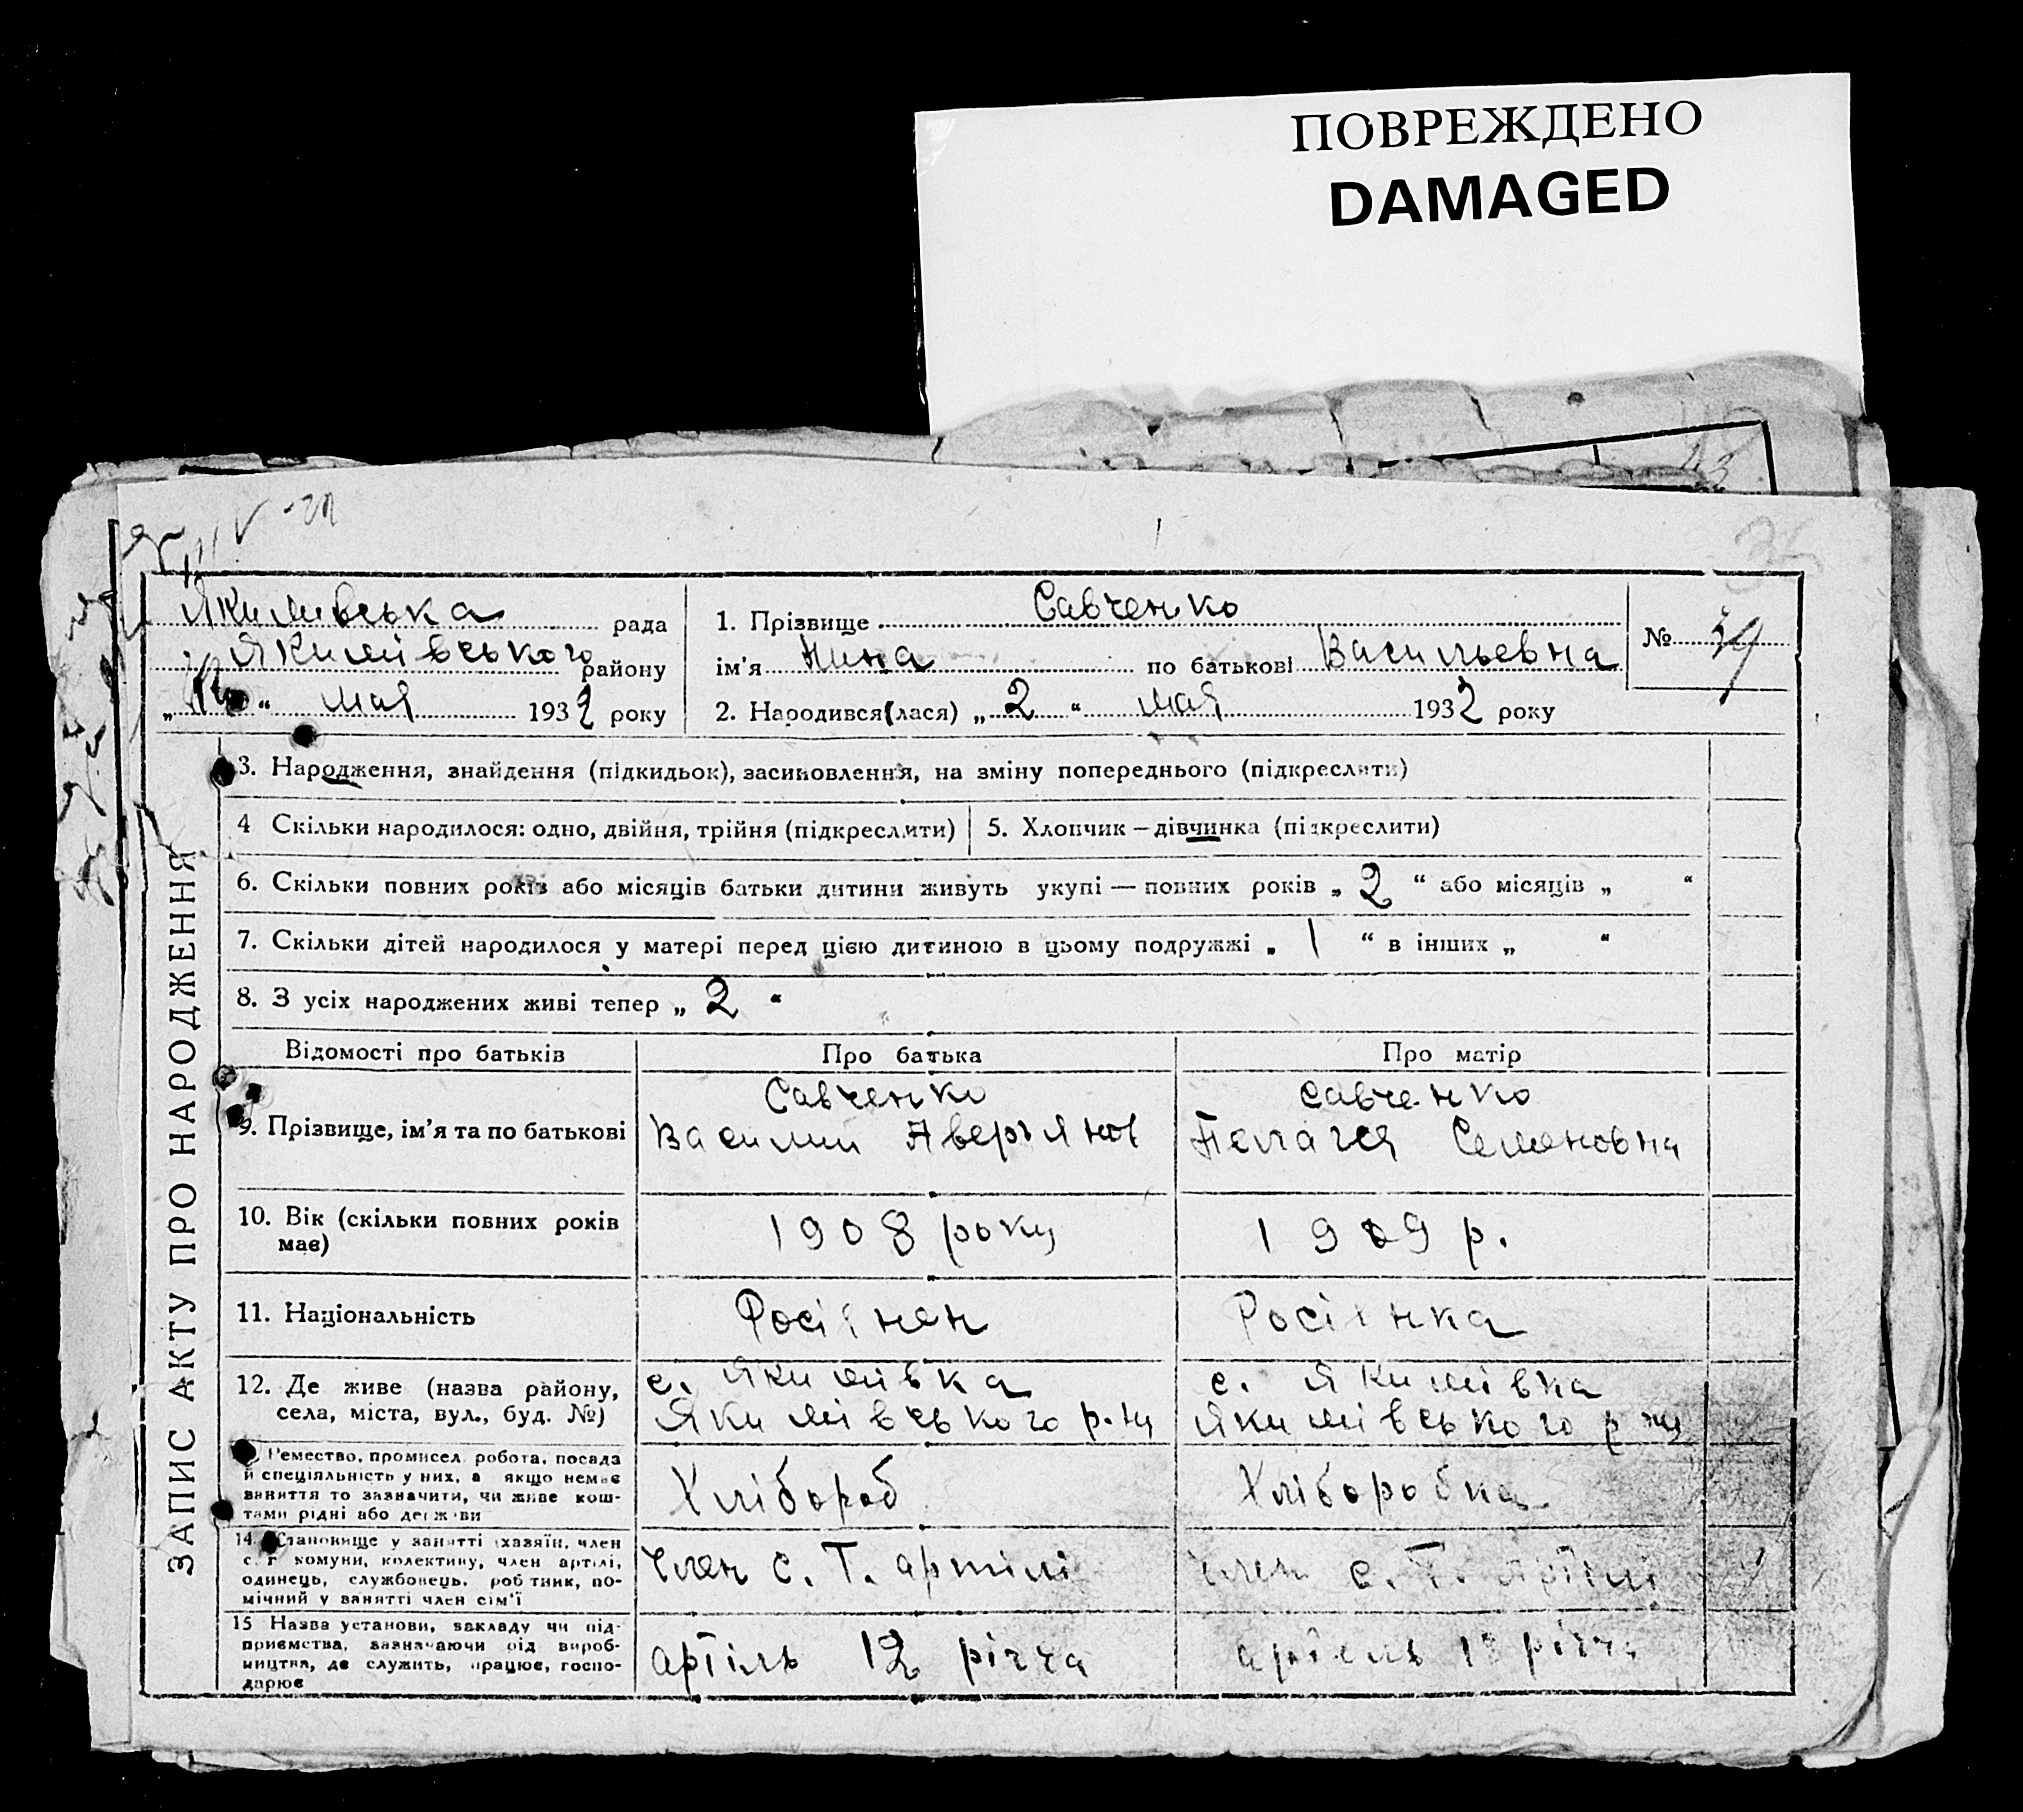 ПОВРЕЖДЕНО
DAMAGED
Якимивська рада
Якимівського району
" мая 1932 року
1. Прізвище Савченко
ім'я Нина по батькові Васильевна
2. Народився(лася) „ 2 “ мая 1932 року
№
ЗАПИС АКТУ ПРО НАРОДЖЕННЯ
3. Народження, знайдення (підкидьок), засиновлення, на зміну попереднього (підкреслити)
4 Скільки народилося: одно, двійня, трійня (підкреслити)
5. Хлопчик – дівчинка (підкреслити)
6. Скільки повних років або місяців батьки дитини живуть укупі — повних років „ 2 “ або місяців „ “
7. Скільки дітей народилося у матері перед цією дитиною в цьому подружжі „ 1 “ в інших „ “
8. З усіх народжених живі тепер „ 2 “
Відомості про батьків Про батька Про матір
9. Прізвище, ім'я та по батькові
Савченко
Василий Аверьянов
Савченко
Пелагея Семеновна
10. Вік (скільки повних років
має)
1908 року
1909 р.
11. Національність
Росіянен
Росіянка
12. Де живе (назва району,
села, міста, вул., буд. №)
с. Якимівка
Якимівського р-ну
с. Якимівка
Якимівського р-ну
Ремество, промисел, робота, посада
й спеціяльність у них, а якщо немає
заняття то зазначити, чи живе кош-
тами рідні або держави
Хлібороб
Хліборобка
14. Становище у занятті (хазяїн, член
с. г. комуни, колективу, член артілі,
одинець, службовець, робітник, по-
мічний у занятті член сім'ї
член с. Т. артілі
член с. Т. артілі
15 Назва установи, закладу чи під-
приємства, зазначаючи рід вироб-
ництва, де служить, працює, госпо-
дарює
артіль 12 річча
артель річча